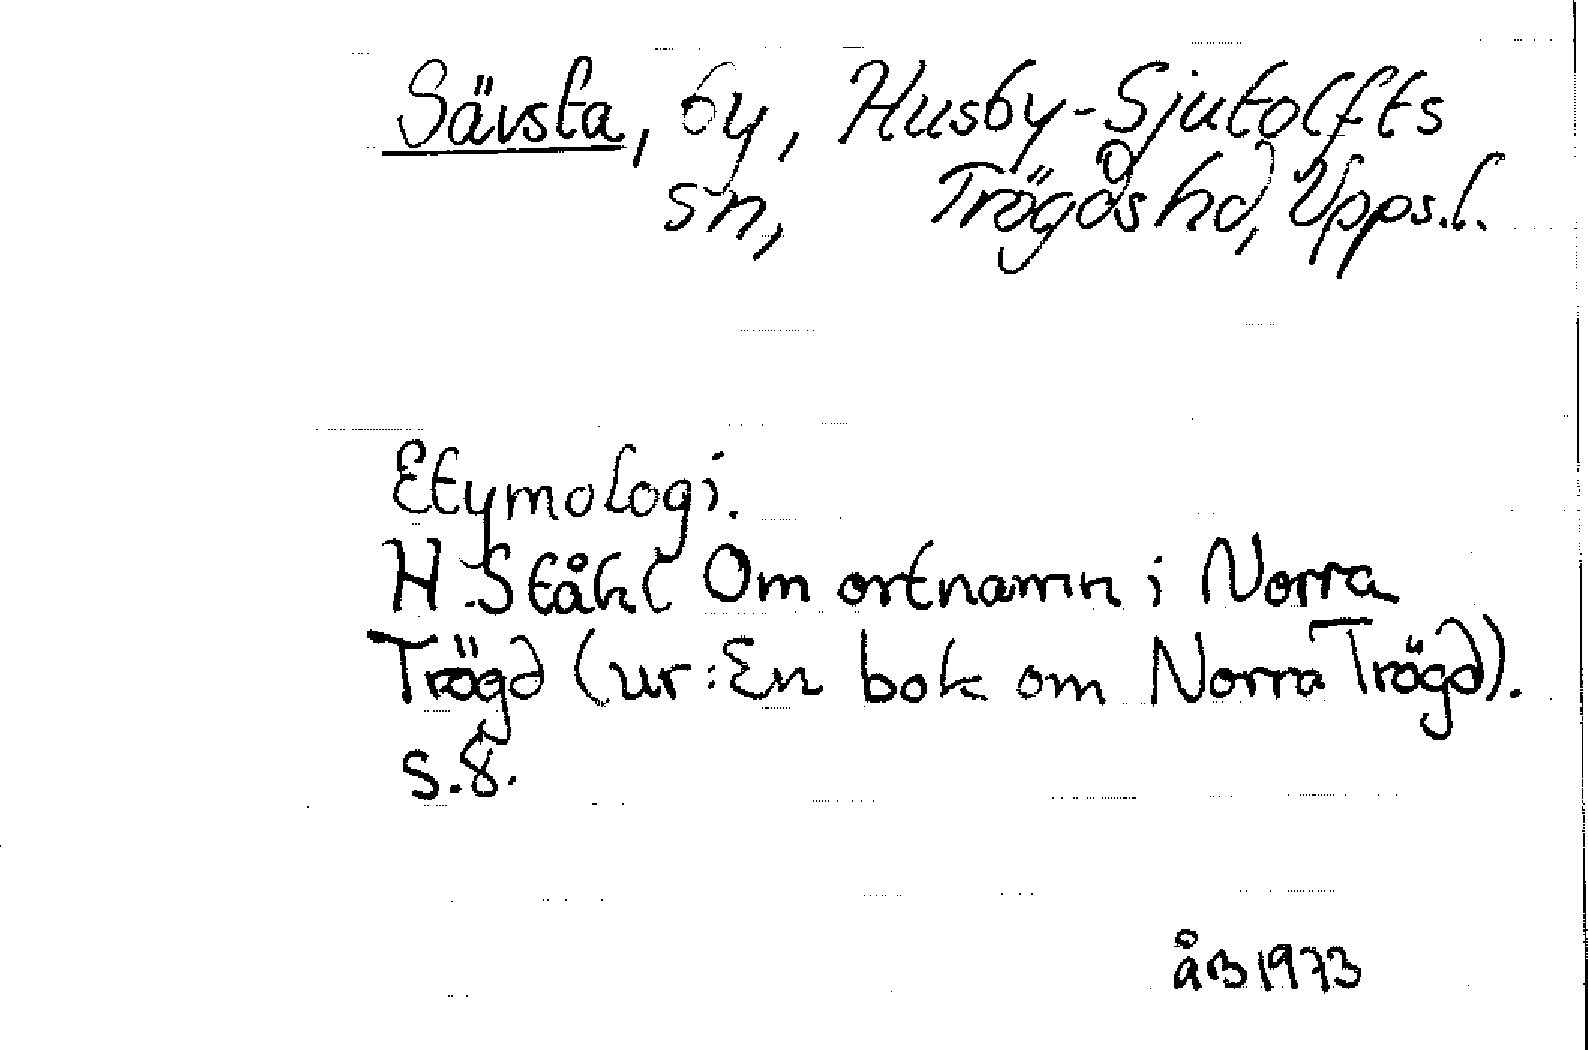 Sävsta, by, Husby-Sjutolfts
sn, Trögds hd, Upps.l.
Etymologi.
H Ståhl Om ortnamn i Norra
Trögd (ur: En bok om Norra Trögd).
s.8.
åB 1973